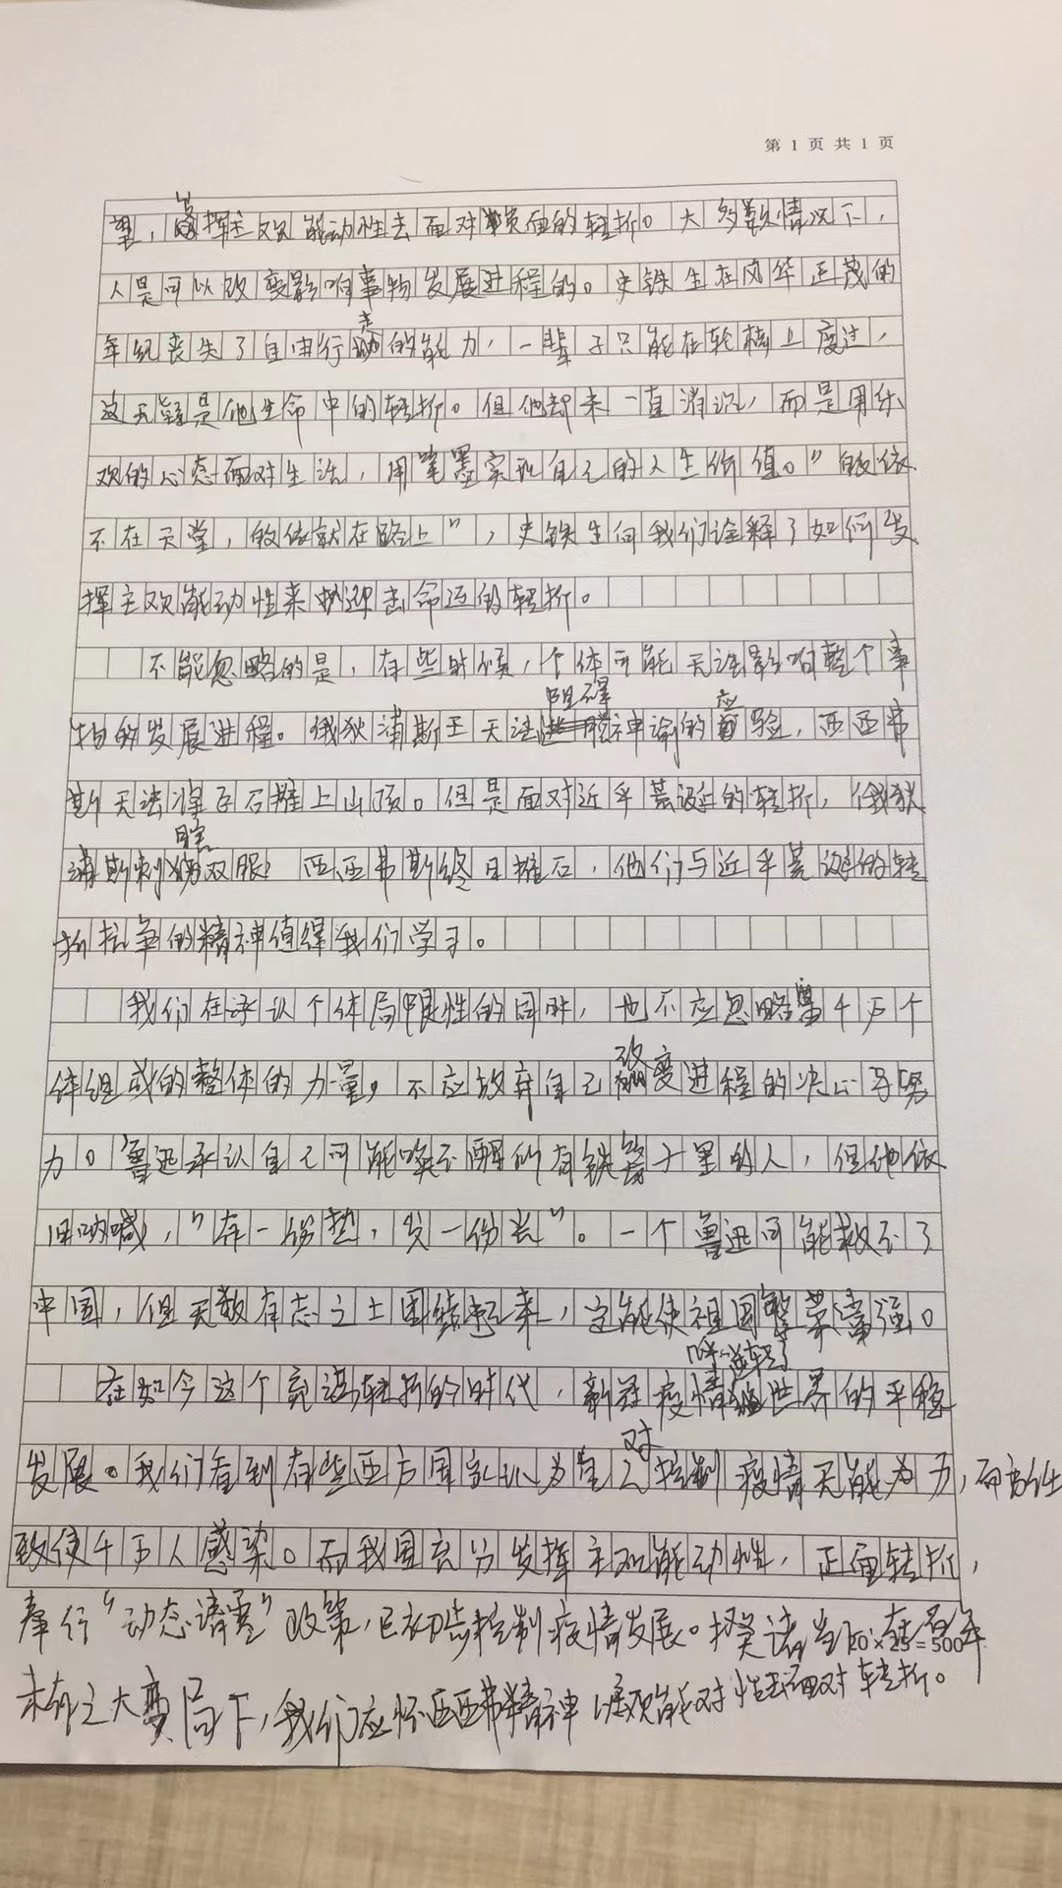 第 1 页 共 1 页
望，发挥主观能动性去面对负面的转折。大多数情况下，
人是可以改变影响事物发展进程的。史铁生在风华正茂的
年纪丧失了自由行走的能力，一辈子只能在轮椅上度过，
这无疑是他生命中的转折。但他却未一直消沉，而是用乐
观的心态面对生活，用笔墨实现自己的人生价值。"皈依
不在天堂，皈依就在路上"，史铁生向我们诠释了如何发
挥主观能动性来迎击命运的转折。
不能忽略的是，有些时候，个体可能无法影响整个事
物的发展进程。俄狄浦斯王无法阻碍神谕的应验，西西弗
斯无法将巨石推上山顶。但是面对近乎荒诞的转折，俄狄
浦斯刺瞎双眼，西西弗斯终日推石，他们与近乎荒诞的转
折抗争的精神值得我们学习。
我们在承认个体局限性的同时，也不应忽略千万个
体组成的整体的力量，不应放弃自己改变进程的决心与努
力。鲁迅承认自己可能唤不醒所有铁笼子里的人，但他依
旧呐喊，"有一份热，发一份光"。一个鲁迅可能救不了
中国，但无数有志之士团结起来，定能使祖国繁荣富强。
在如今这个充满转折的时代，新冠疫情世界的平稳
发展。我们看到有些西方国家认为自己对控制疫情无能为力，
致使千万人感染。而我国充分发挥主观能动性，正面转折，
奉行"动态清零"政策，已初步控制疫情发展。当
20×25=500
未有之大变局下，我们应怀西西弗精神面对转折。